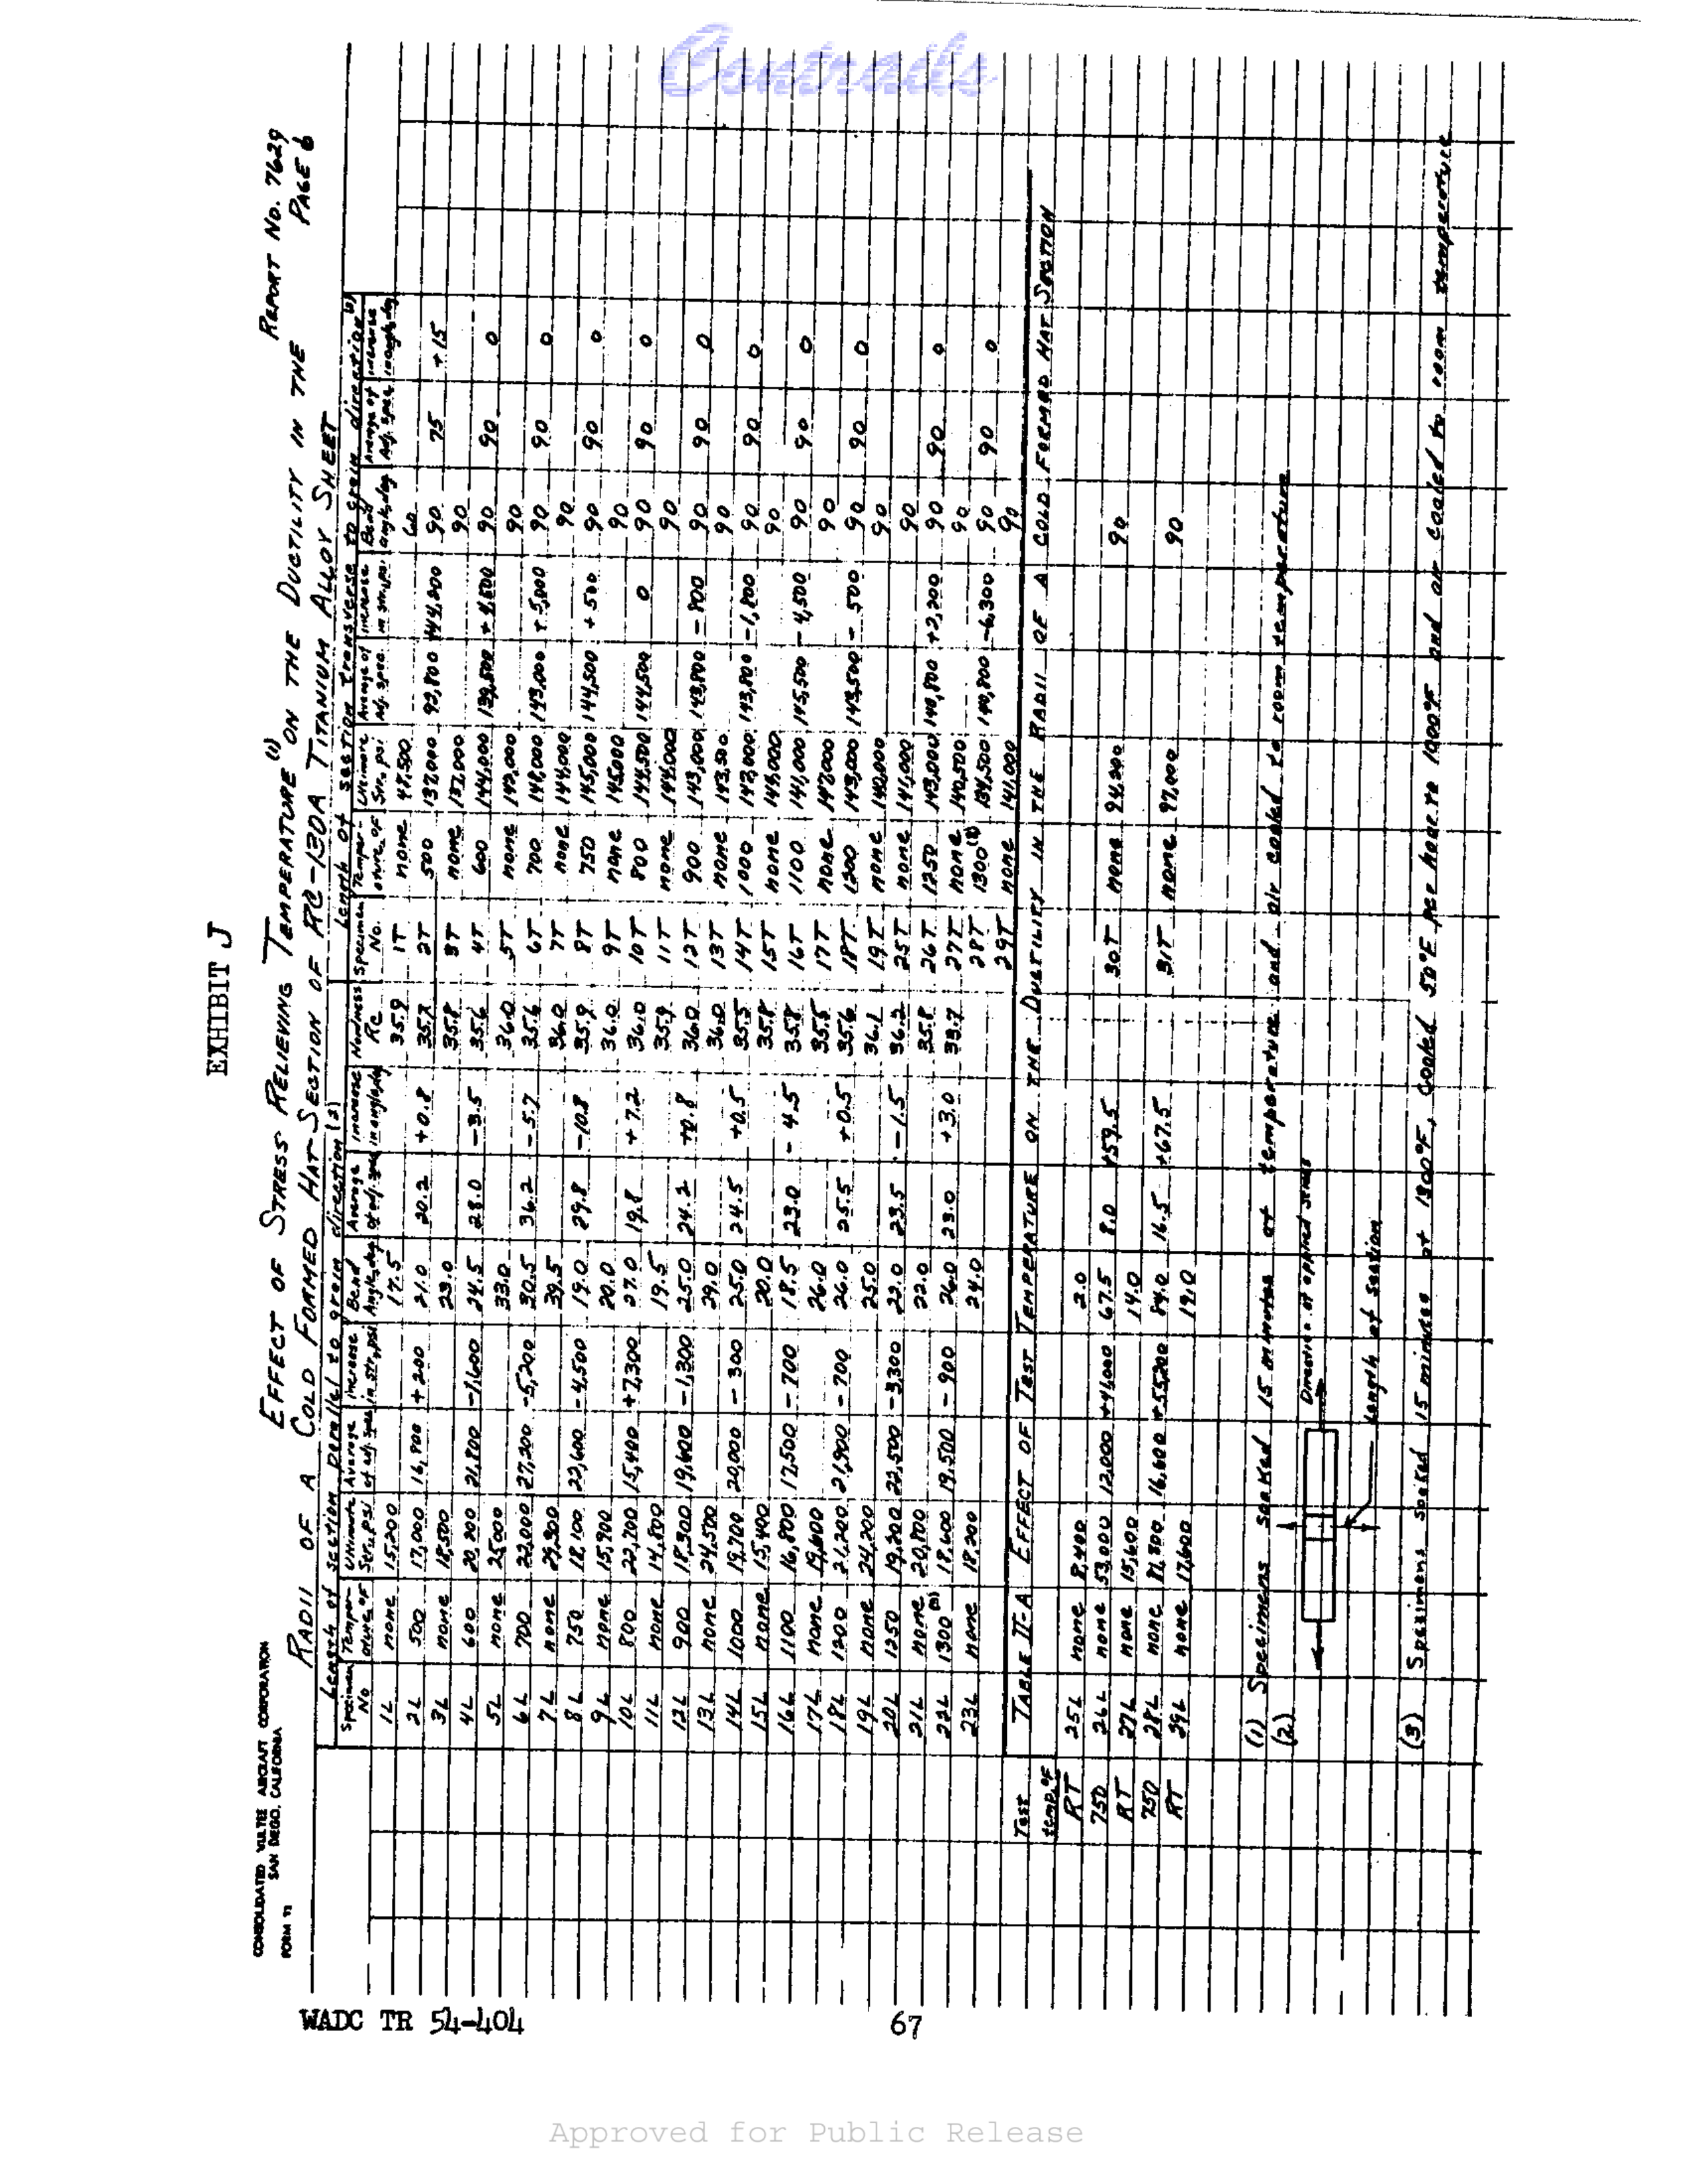 Contrails
EXHIBIT J
CONSOLIDATED VULTEE AIRCRAFT CORPORATION
SAN DIEGO, CALIFORNIA
FORM
REPORT NO. 7629
PAGE 6
EFFECT OF STRESS RELIEVING TEMPERATURE (1) ON THE DUCTILITY IN THE
RADII OF A COLD FORMED HAT-SECTION OF RC-130A TITANIUM ALLOY SHEET
Length of section parallel to grain direction (2) Length of section transverse to grain direction
Specimen No Temperature °F Ultimate Str., psi Average of adj. spec Increase in str., psi Bend Angle, deg Average of adj. spec Increase in angle, deg Hardness Rc Specimen No. Temperature °F Ultimate Str. psi Average of Adj. Spec. Increase in str., psi Bend angle, deg Average of Adj. Spec. increase in angle, deg
1L none 15,200 17.5 35.9 1T none 47,500 60
2L 500 17,000 16,800 +200 21.0 20.2 +0.8 35.7 2T 500 137,000 92,800 90 75 +15
3L none 18,500 23.0 35.8 3T none 137,000 90
4L 600 20,200 21,800 -1,600 24.5 28.0 -3.5 35.6 4T 600 144,000 139,500 +4,500 90 90 0
5L none 25,000 33.0 36.0 5T none 142,000 90
6L 700 22,000 27,200 -5,200 30.5 36.2 -5.7 35.6 6T 700 148,000 143,000 +5,000 90 90 0
7L none 29,300 39.5 36.0 7T none 144,000 90
8L 750 18,100 22,600 -4,500 19.0 29.8 -10.8 35.9 8T 750 145,000 144,500 +500 90 90 0
9L none 15,900 20.0 36.0 9T none 145,000 90
10L 800 22,700 15,400 +7,300 27.0 19.8 +7.2 36.0 10T 800 144,500 144,500 0 90 90 0
11L none 14,800 19.5 35.9 11T none 144,000 90
12L 900 18,300 19,600 -1,300 25.0 24.2 +0.8 36.0 12T 900 143,000 143,800 -800 90 90 0
13L none 24,500 29.0 36.0 13T none 143,500 90
14L 1000 19,700 20,000 -300 25.0 24.5 +0.5 35.5 14T 1000 142,000 143,800 -1,800 90 90 0
15L none 15,400 20.0 35.8 15T none 144,000 90
16L 1100 16,800 17,500 -700 18.5 23.0 -4.5 35.8 16T 1100 141,000 145,500 -4,500 90 90 0
17L none 19,600 26.0 35.5 17T none 147,000 90
18L 1200 21,200 21,900 -700 26.0 25.5 +0.5 35.6 18T 1200 143,000 143,500 -500 90 90 0
19L none 24,200 25.0 36.1 19T none 140,000 90
20L 1250 19,200 22,500 -3,300 22.0 23.5 -1.5 36.2 25T none 141,000 90
21L none 20,800 22.0 35.8 26T 1250 143,000 140,800 +2,200 90 90 0
22L 1300 (3) 18,600 19,500 -900 26.0 23.0 +3.0 33.7 27T none 140,500 90
23L none 18,200 24.0 28T 1300 134,500 140,800 -6,300 90 90 0
29T none 141,000 90
TABLE II-A EFFECT OF TEST TEMPERATURE ON THE DUCTILITY IN THE RADII OF A COLD FORMED HAT SECTION
Test temp, °F
RT 25L none 8,400 2.0
750 26L none 53,000 12,000 +41,000 67.5 8.0 +59.5 30T none 94,200 90
RT 27L none 15,600 14.0
750 28L none 71,800 16,600 +55,200 84.0 16.5 +67.5 31T none 97,000 90
RT 29L none 17,600 19.0
(1) Specimens soaked 15 minutes at temperature and air cooled to room temperature
(2)
Direction of applied stress
Length of section
(3) Specimens soaked 15 minutes at 1300°F, Cooled 50°F per hour to 1000°F and air cooled to room temperature
WADC TR 54-404
67
Approved for Public Release